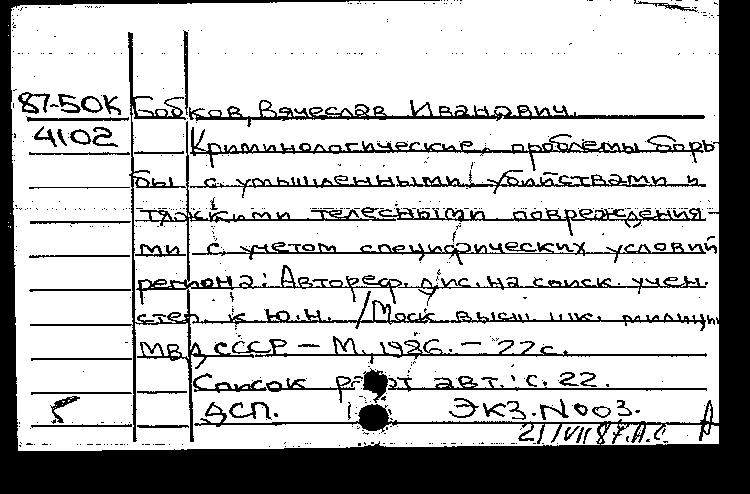 87-50К Бобков, Вячеслав Иванович.
4102 Криминологические проблемы борь-
бы с умышленными убийствами и
тяжкими телесными повреждения-
ми с учетом специфических условий
региона: Автореф. дис. на соиск. учен.
степ. к.ю.н. / Моск. высш. шк. милиции
МВД СССР. - М., 1986. - 22 с.
Список работ авт.: с. 22.
ДСП. Экз. N 003.
21/VII 87. А.С.